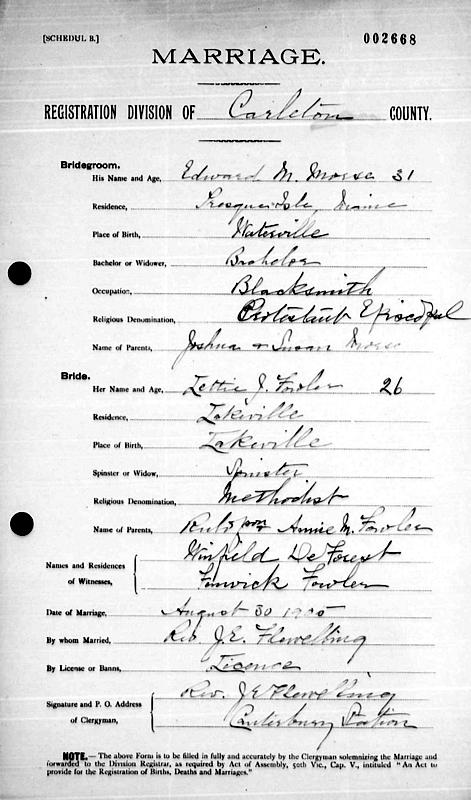 [SCHEDUL B.] 002668
MARRIAGE.
REGISTRATION DIVISION OF Carleton COUNTY.
Bridegroom.
His Name and Age, Edward M. Morse 31
Residence, Presque Isle, Maine
Place of Birth, Waterville
Bachelor or Widower, Bachelor
Occupation, Blacksmith
Religious Denomination, Protestant Episcopal
Name of Parents, Joshua & Susan Morse
Bride.
Her Name and Age, Lettie J. Fowler 26
Residence, Lakeville
Place of Birth, Lakeville
Spinster or Widow, Spinster
Religious Denomination, Methodist
Name of Parents, Annie M. Fowler
Names and Residences of Witnesses, Winfield DeForest
Fenwick Fowler
Date of Marriage, August 30 1905
By whom Married, Rev. J.E. Flewelling
By License or Banns, Licence
Signature and P. O. Address of Clergyman, Rev. J E Flewelling
Canterbury Station
NOTE.— The above Form is to be filled in fully and accurately by the Clergyman solemnizing the Marriage and
forwarded to the Division Registrar, as required by Act of Assembly, 50th Vic., Cap. V., intituled "An Act to
provide for the Registration of Births, Deaths and Marriages."